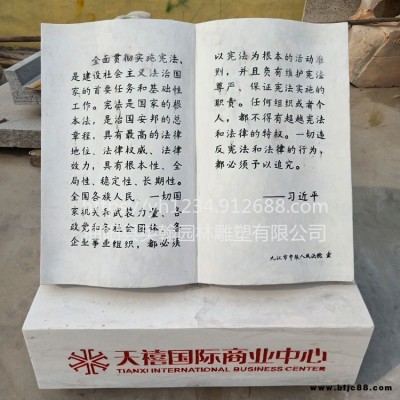 全面贯彻实施宪法,
是建设社会主义法治国
家的首要任务和基础性
工作。宪法是国家的根
本法,是治国安邦的总
章程,具有最高的法律
地位、法律权威、法律
效力,具有根本性、全
局性、稳定性、长期性。
全国各族人民、一切国
家机关和武装力量、各
政党和各社会团体、各
企业事业组织,都必须
以宪法为根本的活动准
则,并且负有维护宪法
尊严、保证宪法实施的
职责。任何组织或者个
人,都不得有超越宪法
和法律的特权。一切违
反宪法和法律的行为,
都必须予以追究。
——习近平
人民法院 宣
天禧国际商业中心
TIANXI INTERNATIONAL BUSINESS CENTER
园林雕塑有限公司
www.bfjc88.com